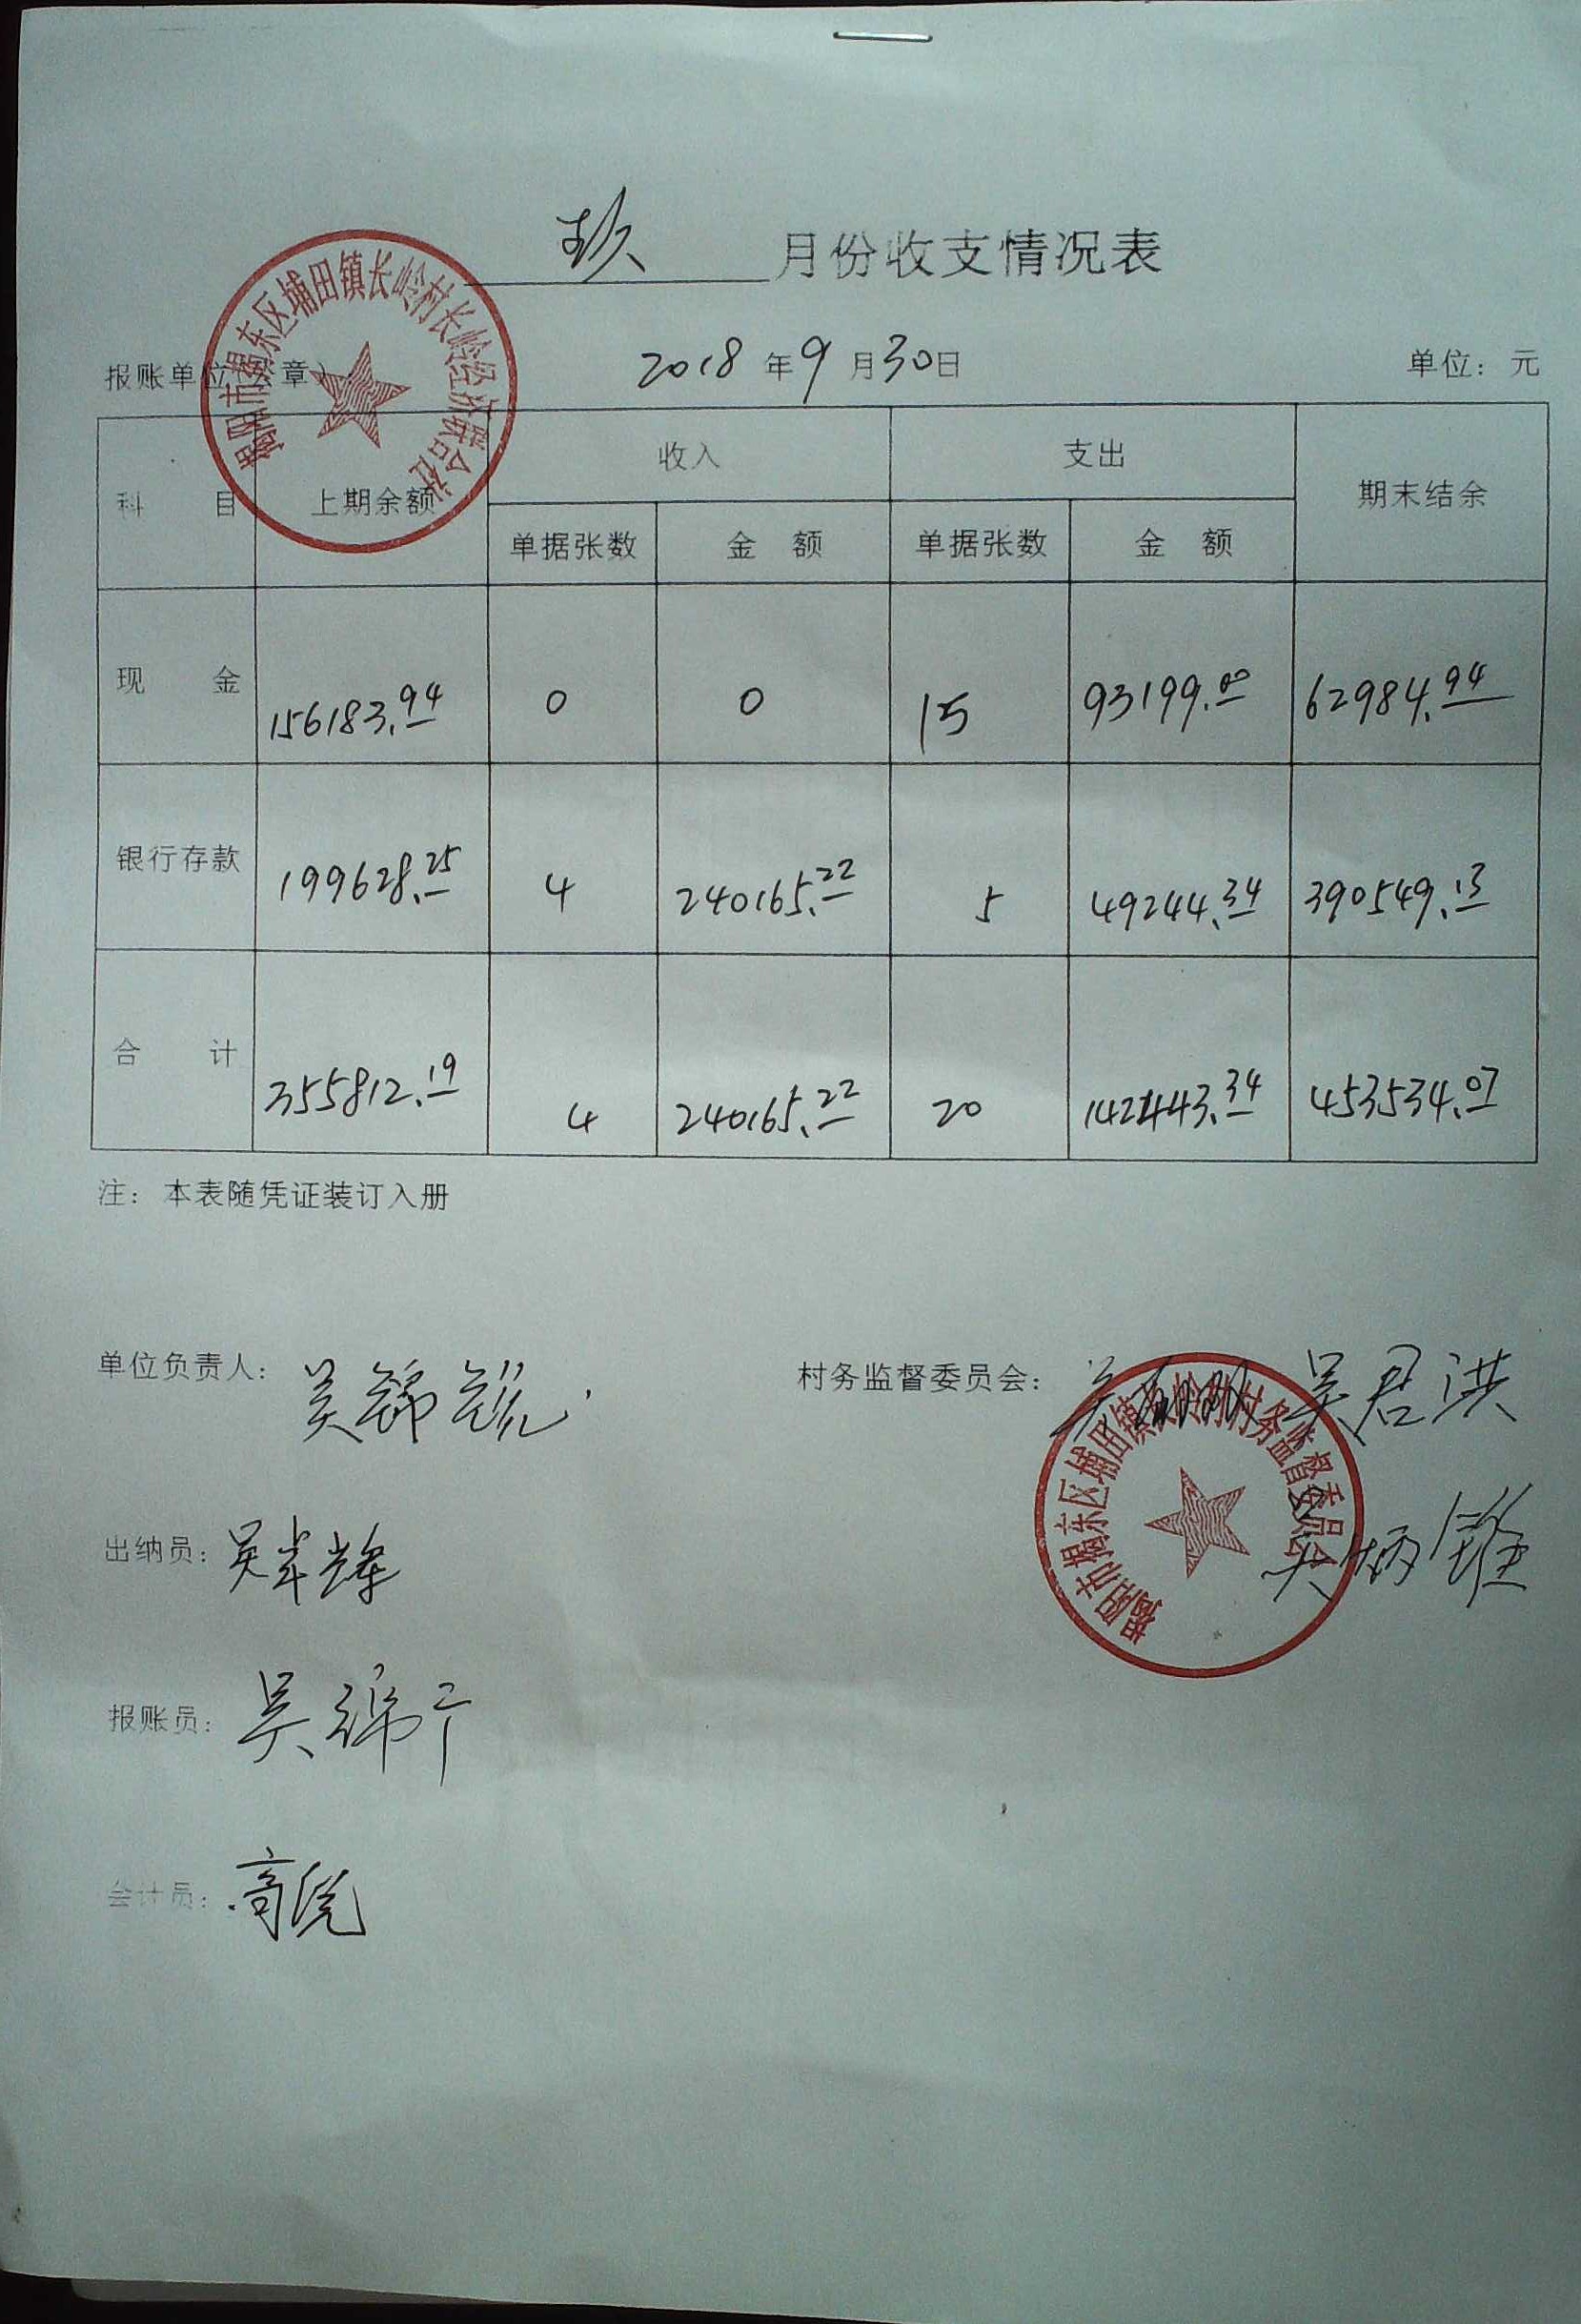 玖月份收支情况表
揭阳市揭东区埔田镇长岭村长岭经济联合社
报账单位(公章) 2018年9月30日 单位：元
科目 上期余额 收入 支出 期末结余
单据张数 金额 单据张数 金额
现金 156183.94 0 0 15 93199.00 62984.94
银行存款 199628.25 4 240165.22 5 49244.34 390549.13
合计 355812.19 4 240165.22 20 142443.34 453534.07
注：本表随凭证装订入册
单位负责人：吴锦锐 村务监督委员会：吴君洪
揭阳市揭东区埔田镇长岭村村务监督委员会
出纳员：吴 吴炳
报账员：吴
会计员：高